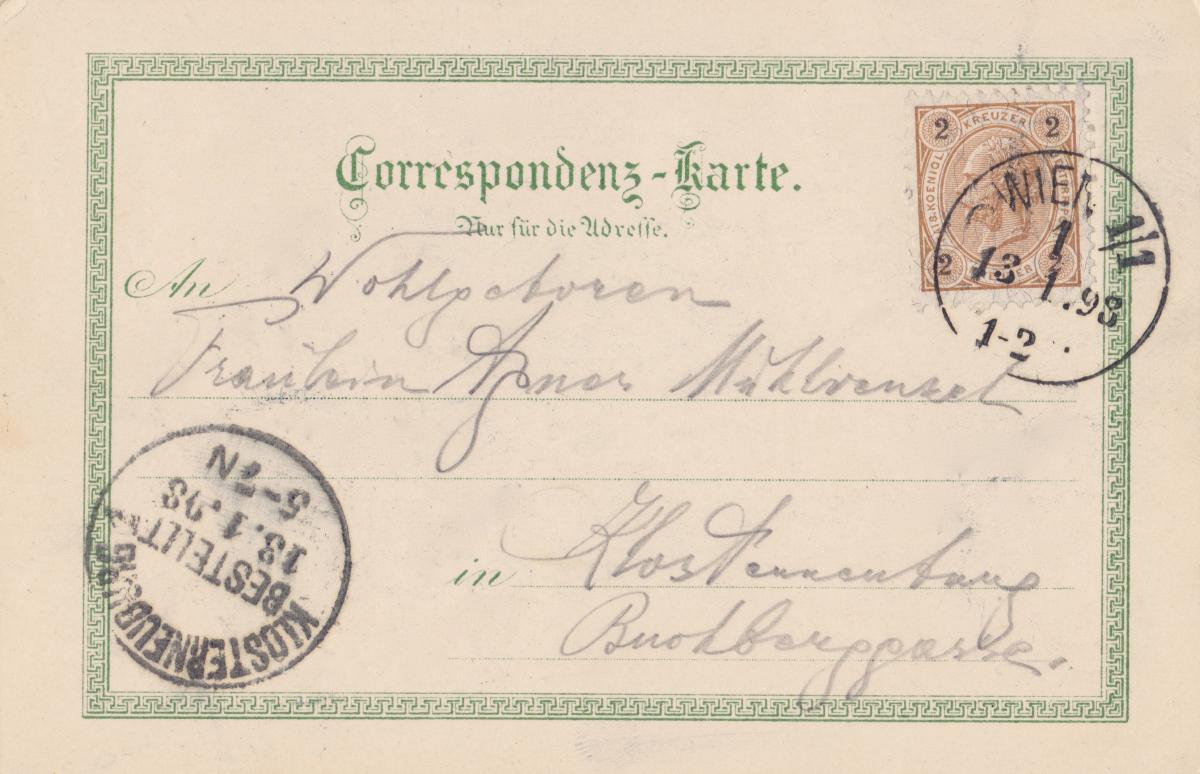 Correspondenz-Karte.
Nur für die Adresse.
2 KREUZER 2
2 KREUZER 2
WIEN 1/1
1
13 1.98
1-2
An Wohlgeboren
Fräulein Agnes Mühlvenzel
in Klosterneuburg
Buchberggasse.
KLOSTERNEUBURG
BESTELLT
13.1.98
5-7N